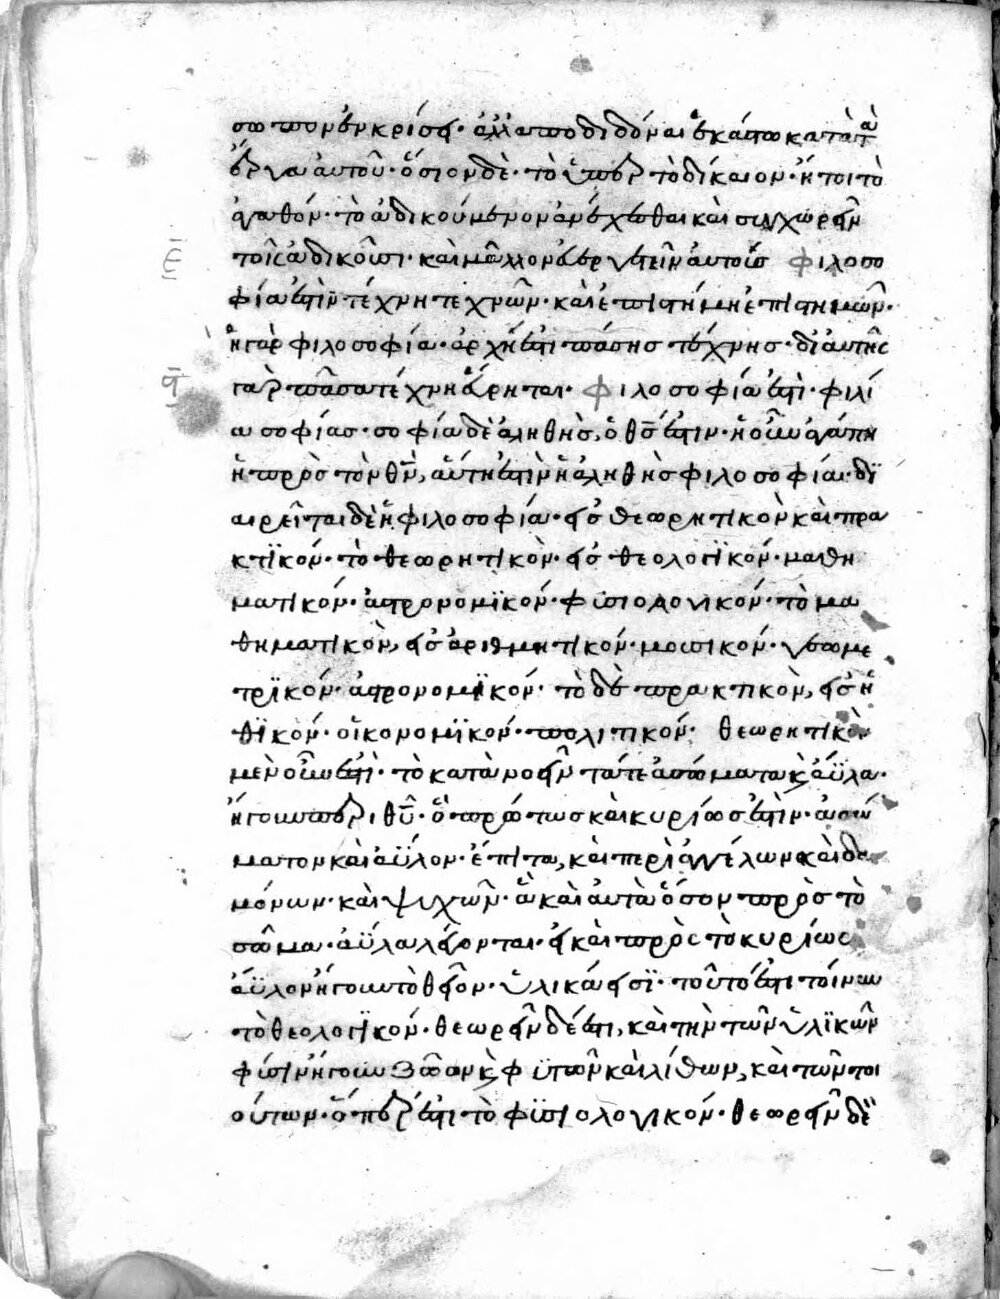 σωπον ἐν κρίσει· ἀλλ' ἀποδιδόναι ἑκάστω κατὰ τὰ
ἔργα αὐτοῦ· ὅσιον δὲ· τὸ ὑπὲρ τὸ δίκαιον· ἤτοι τὸ
ἀγαθόν· τὸ ἀδικούμενον ἀνέχεσθαι καὶ συγχωρεῖν
τοῖς ἀδικοῦσι· καὶ μᾶλλον εὐεργετεῖν αὐτοῖς φιλοσο
Ε
φία ἐστὶν τέχνη τεχνῶν· καὶ ἐπιστήμη ἐπιστημῶν·
ἡ γὰρ φιλοσοφία· ἀρχή ἐστι πάσης τέχνης· δι' αὐτῆς
γὰρ πᾶσα τέχνη εὕρηται· φιλοσοφία ἐστὶ· φιλί
ϛ
α σοφίας· σοφία δὲ ἀληθὴς, ὁ θς ἐστιν· ἡ οὖν ἀγάπη
ἡ πρὸς τὸν θν, αὕτη ἐστὶν ἡ ἀληθὴς φιλοσοφία· δϊ
αιρεῖται δὲ ἡ φιλοσοφία· εἰς θεωρητικὸν καὶ πρα
κτϊκόν· τὸ θεωρητικὸν· εἰς θεολογϊκόν· μαθη
ματικόν· ἀστρονομϊκόν· φυσιολογικόν· τὸ μα
θηματικὸν, εἰς ἀριθμητικόν· μουσικόν· γεωμε
τρϊκόν· ἀστρονομϊκόν· τὸ δὲ πρακτικὸν, εἰς ἠ
θϊκόν· οἰκονομϊκόν· πολιτικόν· θεωρητικὸν
μὲν οὖν ἐστὶ· τὸ κατανοεῖν τά τε ἀσώματα κ ἄϋλα·
ἤγουν περὶ θυ· ὃ πρώτως καὶ κυρίως ἐστὶν· ἀσώ
ματον καὶ ἄϋλον· ἔπιτα, καὶ περὶ ἀγγέλων καὶ δαι
μόνων· καὶ ψυχῶν· ἃ καὶ αὐτὰ ὅσον πρὸς τὸ
σῶμα· ἄϋλα λέγονται· εἰ καὶ πρὸς τὸ κυρίως
ἄϋλον ἤγουν τὸ θεῖον· ὑλικά εἰσϊ· τοῦτό ἐστι τοίνυν
τὸ θεολογϊκόν· θεωρεῖν δέ ἐστι, καὶ τὴν τῶν ὑλϊκῶν
φύσιν ἤγουν ζώων κ φϋτῶν καὶ λίθων, καὶ τῶν τοι
ούτων· ὅπερ ἐστι τὸ φϋσιολογικόν· θεωρεῖν δὲ